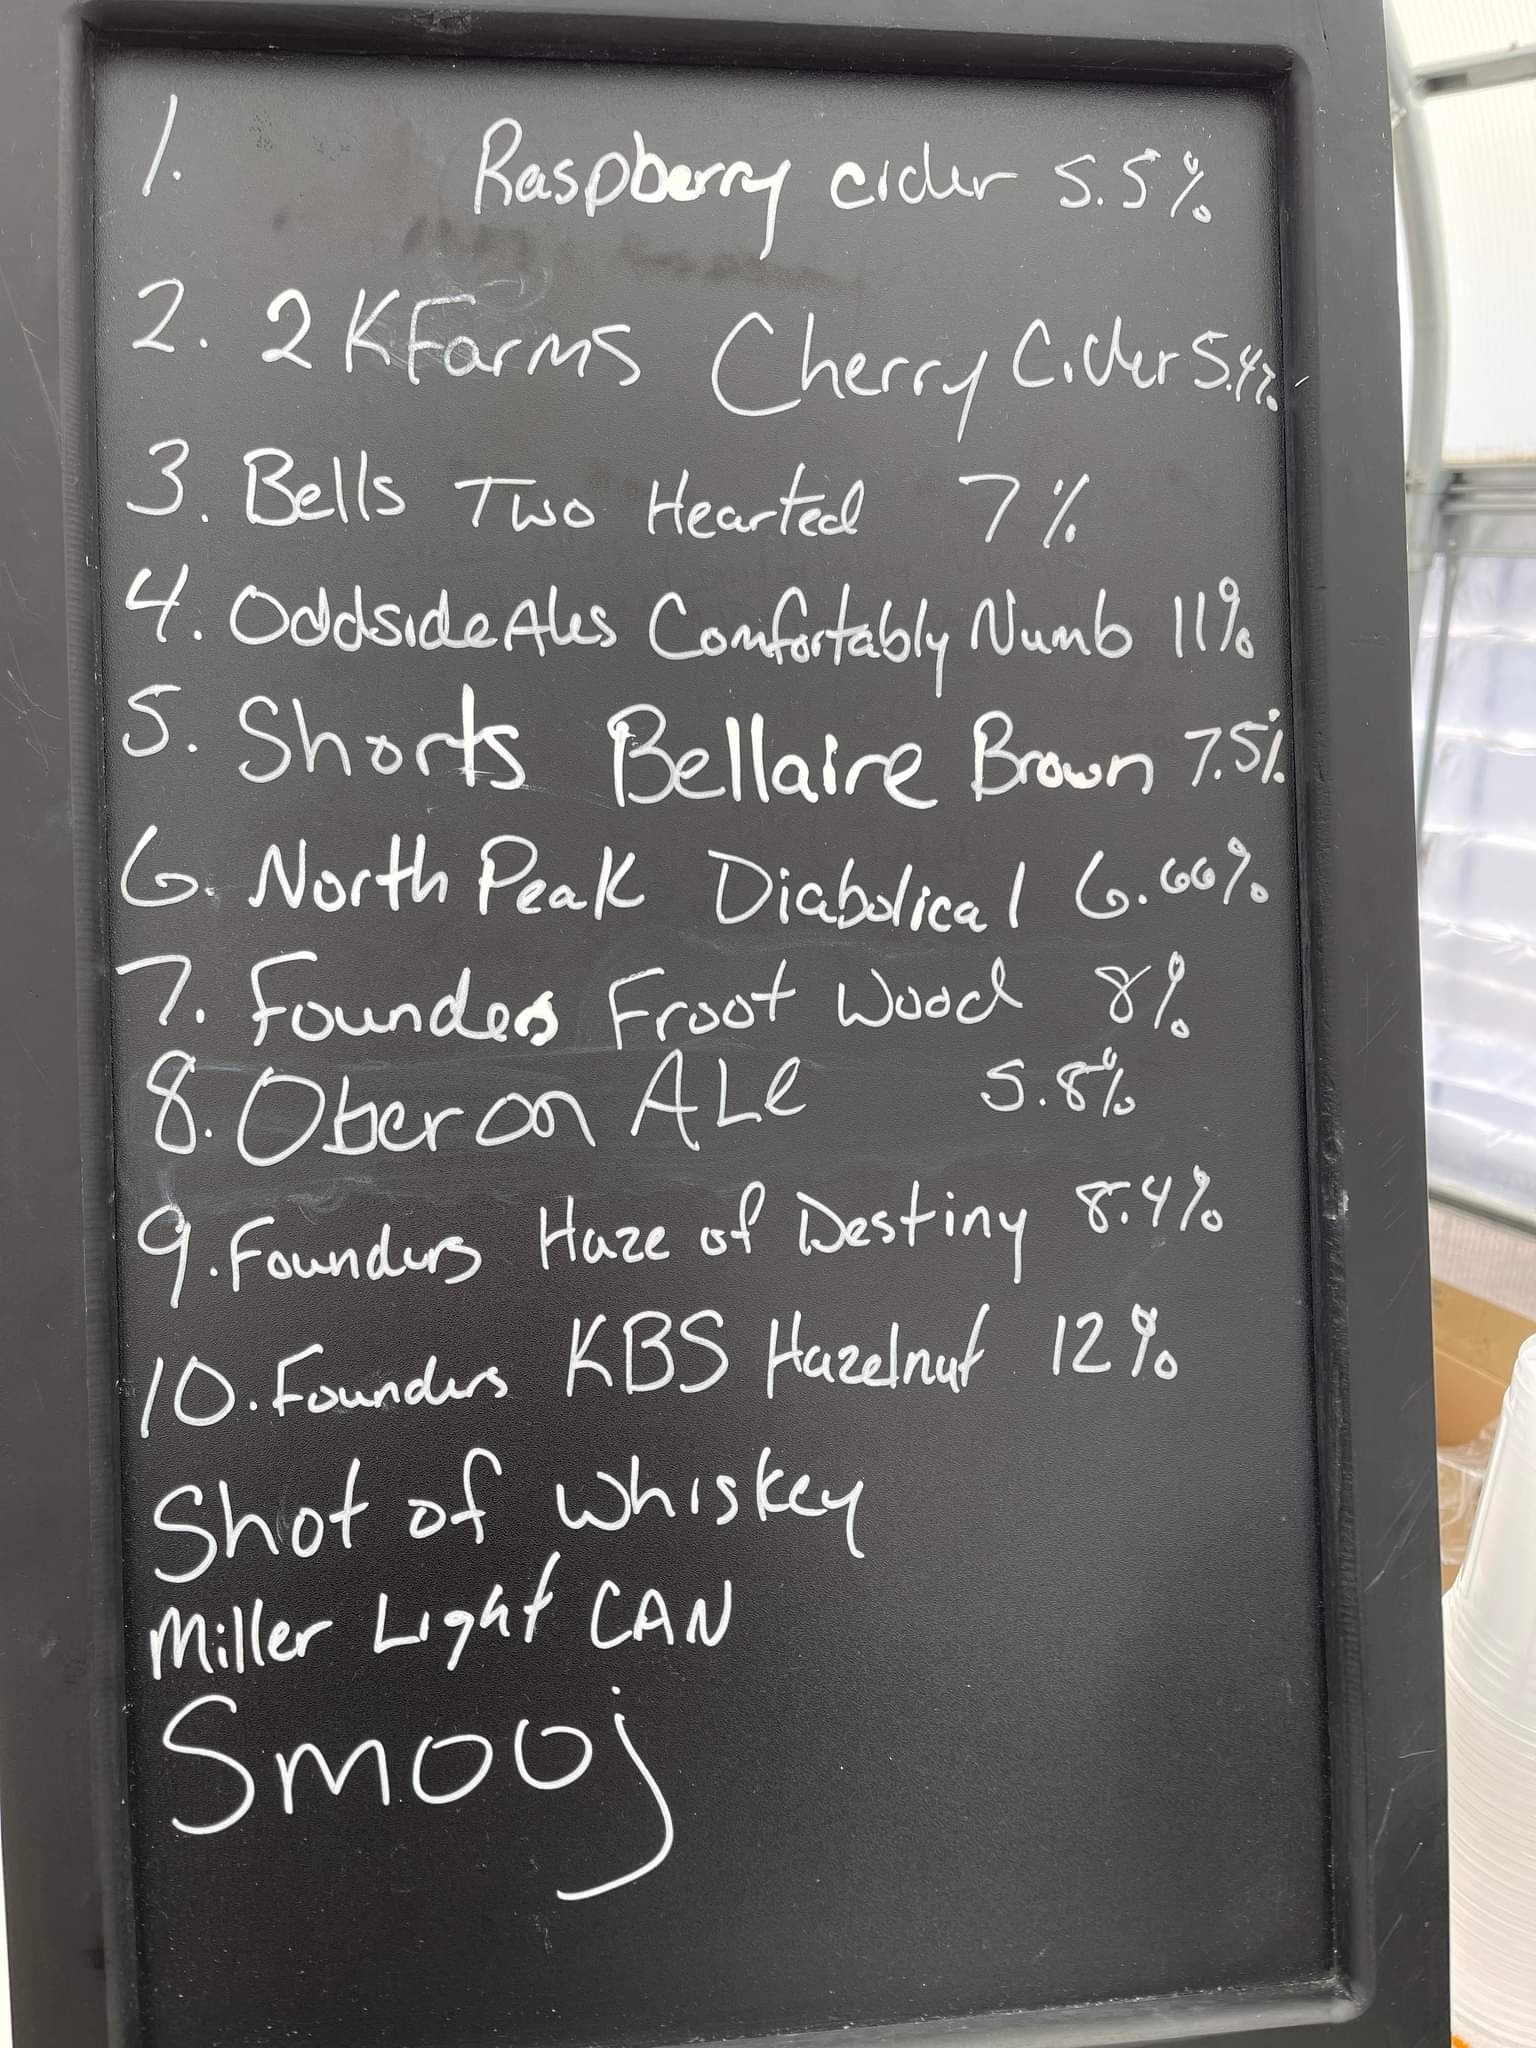 1. Raspberry cider 5.5%
2. 2KFarms Cherry Cider 5.4%
3. Bells Two Hearted 7%
4. Oddside Ales Comfortably Numb 11%
5. Shorts Bellaire Brown 7.5%
6. North Peak Diabolical 6.66%
7. Founders Froot Wood 8%
8. Oberon ALe 5.8%
9. Founders Haze of Destiny 8.4%
10. Founders KBS Hazelnut 12%
Shot of whiskey
Miller Light CAN
Smooj